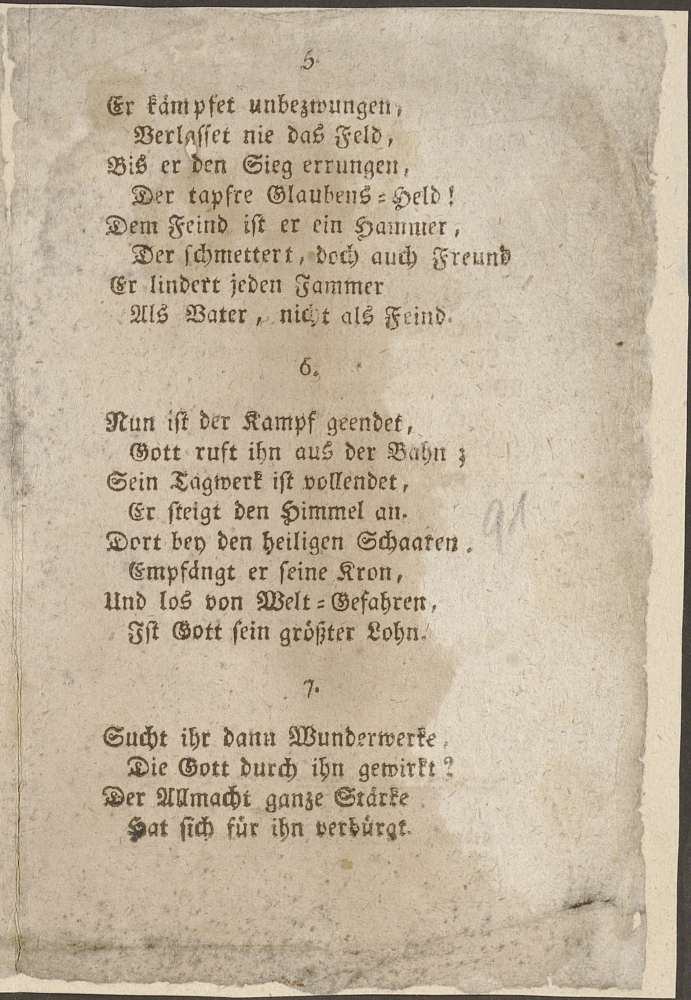 5.
Er kämpfet unbezwungen,
Verlasset nie das Feld,
Bis er den Sieg errungen,
Der tapfre Glaubens-Held!
Dem Feind ist er ein Hammer,
Der schmettert, doch auch Freund
Er lindert jeden Jammer
Als Vater, nicht als Feind.
6.
Nun ist der Kampf geendet,
Gott ruft ihn aus der Bahn;
Sein Tagwerk ist vollendet,
Er steigt den Himmel an.
91
Dort bey den heiligen Schaaren,
Empfängt er seine Kron,
Und los von Welt-Gefahren,
Ist Gott sein größter Lohn.
7.
Sucht ihr dann Wunderwerke,
Die Gott durch ihn gewirkt?
Der Allmacht ganze Stärke
Hat sich für ihn verbürgt.